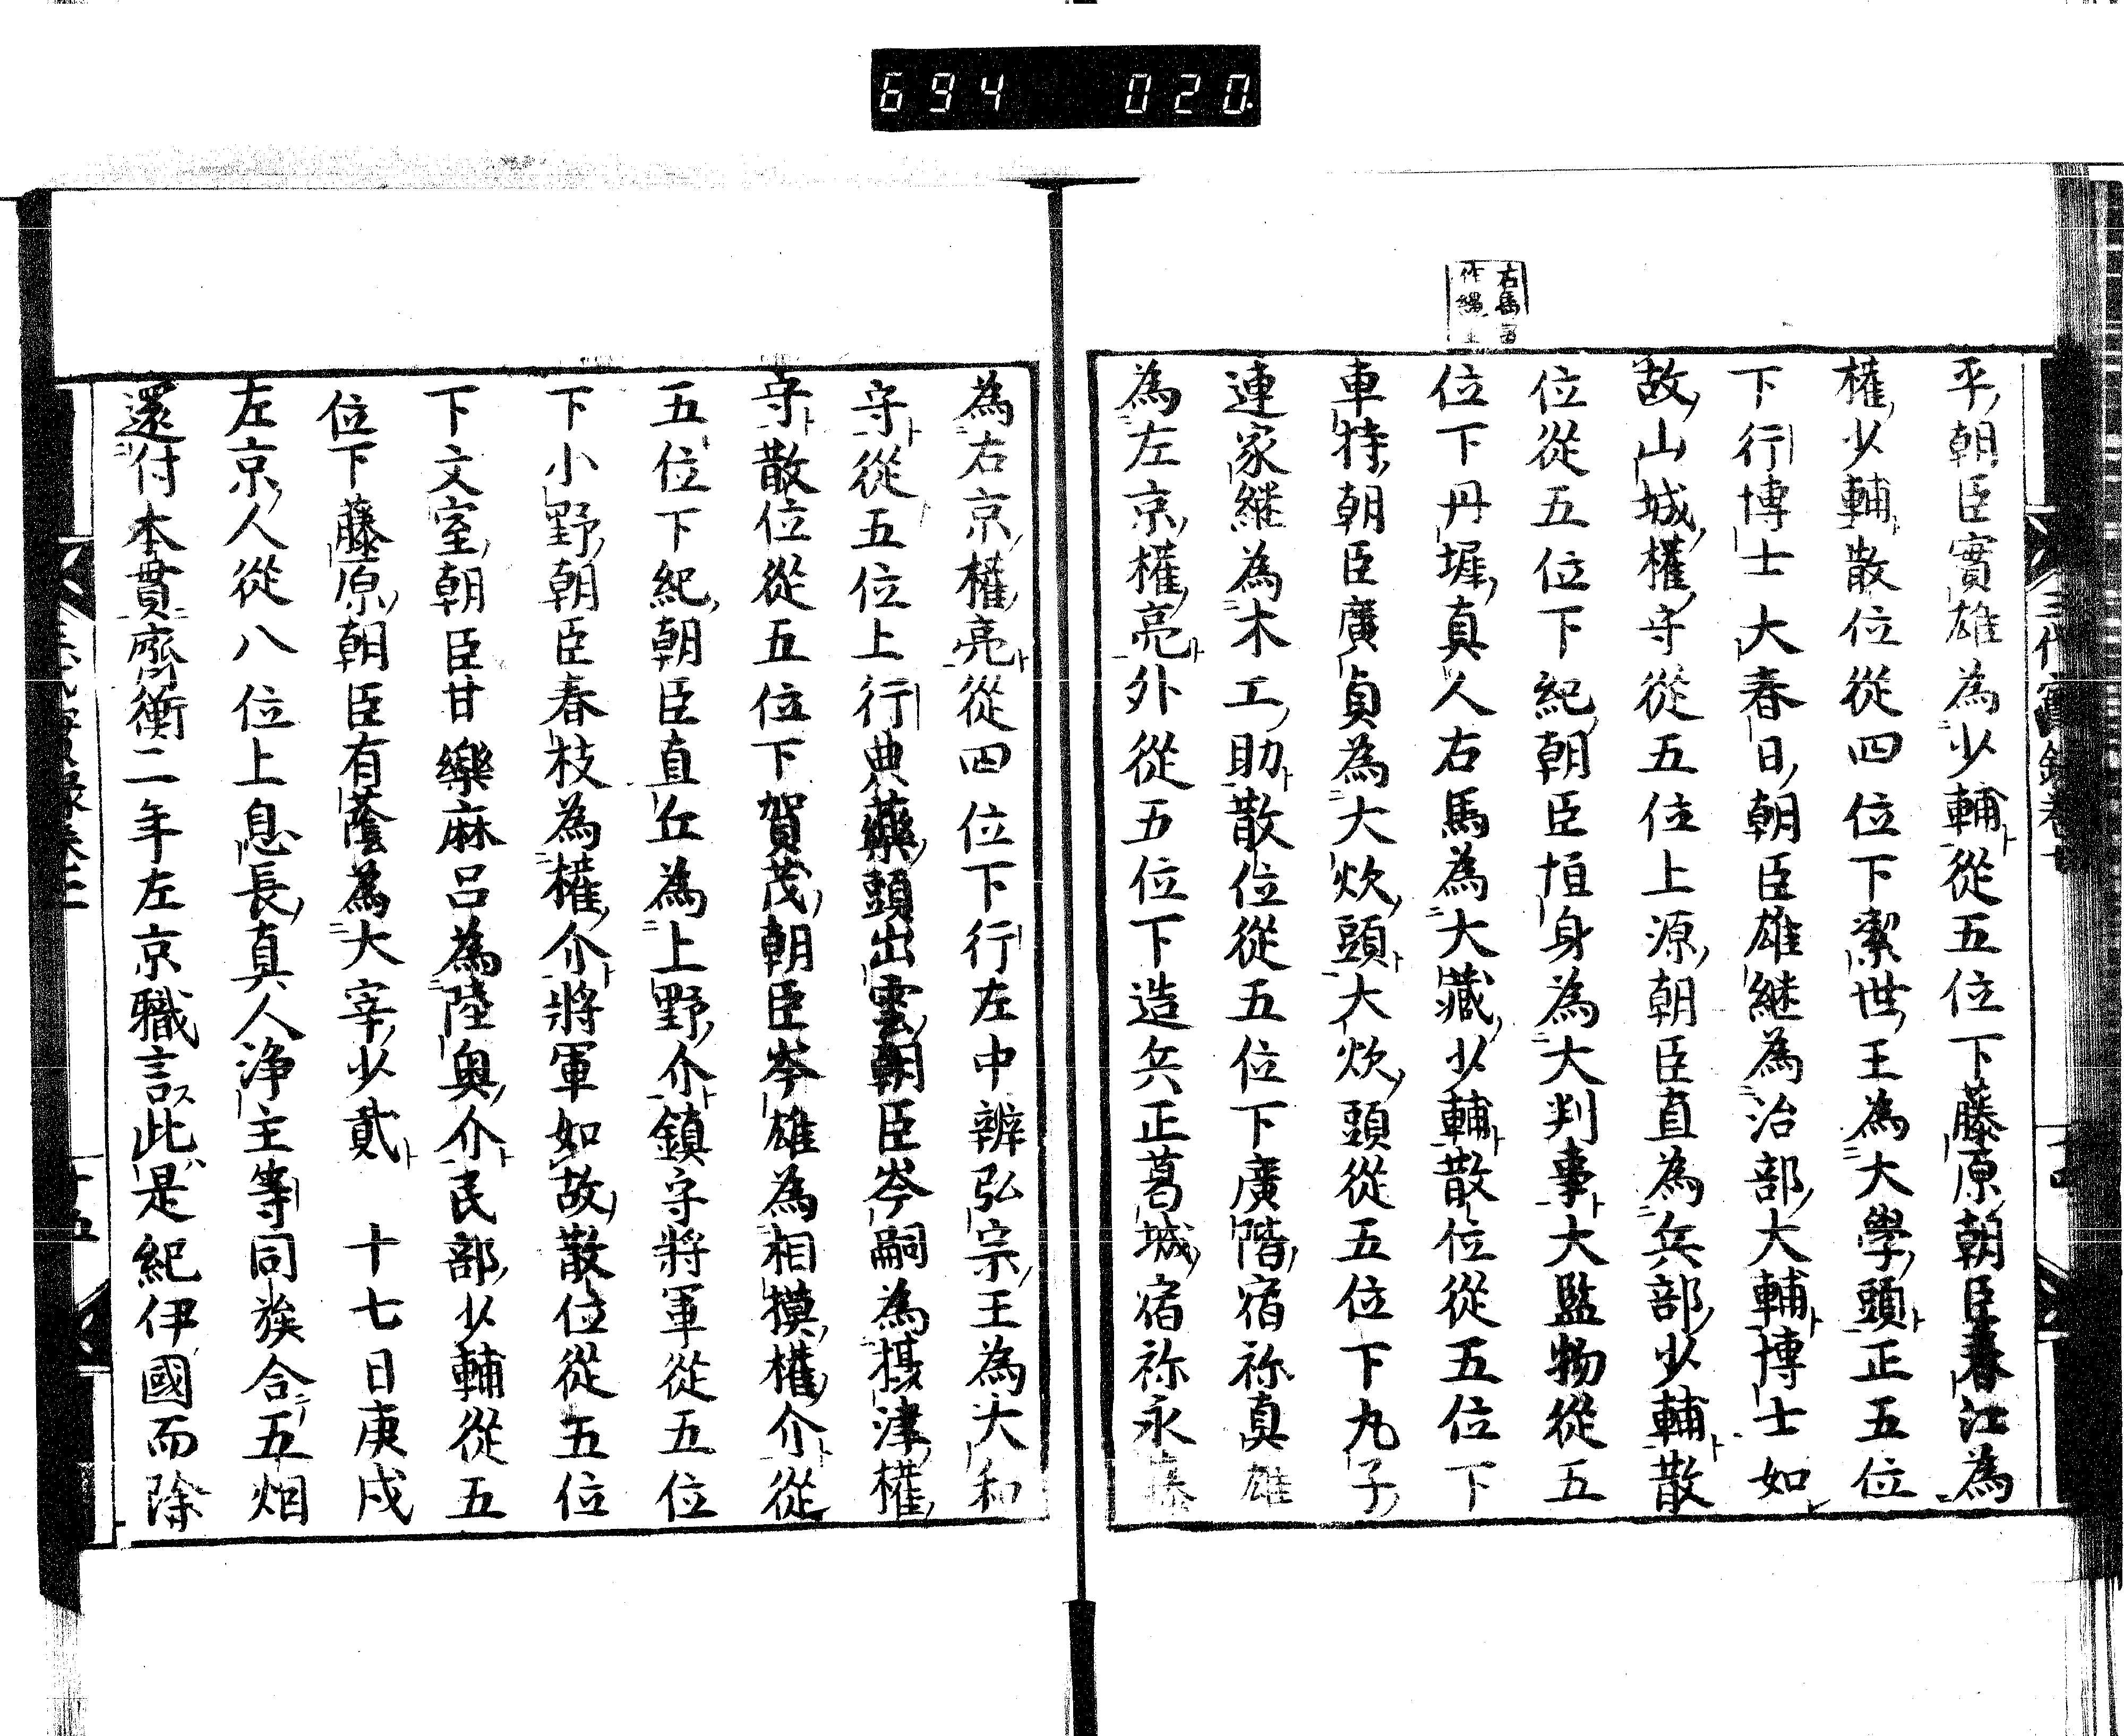 694 020.
右馬
作繩
平朝臣實雄為少輔從五位下藤原朝臣春江為
權少輔散位從四位下潔世王為大學頭正五位
下行博士大春日朝臣雄継為治部大輔博士如
故山城權守從五位上源朝臣直為兵部少輔散
位從五位下紀朝臣恒身為大判事大監物從五
位下丹墀真人右馬為大藏少輔散位從五位下
車持朝臣廣貞為大炊頭大炊頭從五位下丸子
連家継為木工助散位從五位下廣階宿祢真雄
為左京權亮外從五位下造兵正葛城宿祢永藤
三代實錄卷
為右京權亮從四位下行左中辨弘宗王為大和
守從五位上行典藥頭出雲朝臣岑嗣為摂津權
守散位從五位下賀茂朝臣岑雄為相摸權介從
五位下紀朝臣直丘為上野介鎮守將軍從五位
下小野朝臣春枝為權介將軍如故散位從五位
下文室朝臣甘樂麻呂為陸奥介民部少輔從五
位下藤原朝臣有蔭為大宰少貳　十七日庚戌
左京人從八位上息長真人浄主等同族合五烟
還付本貫齊衡二年左京職言此是紀伊國而除